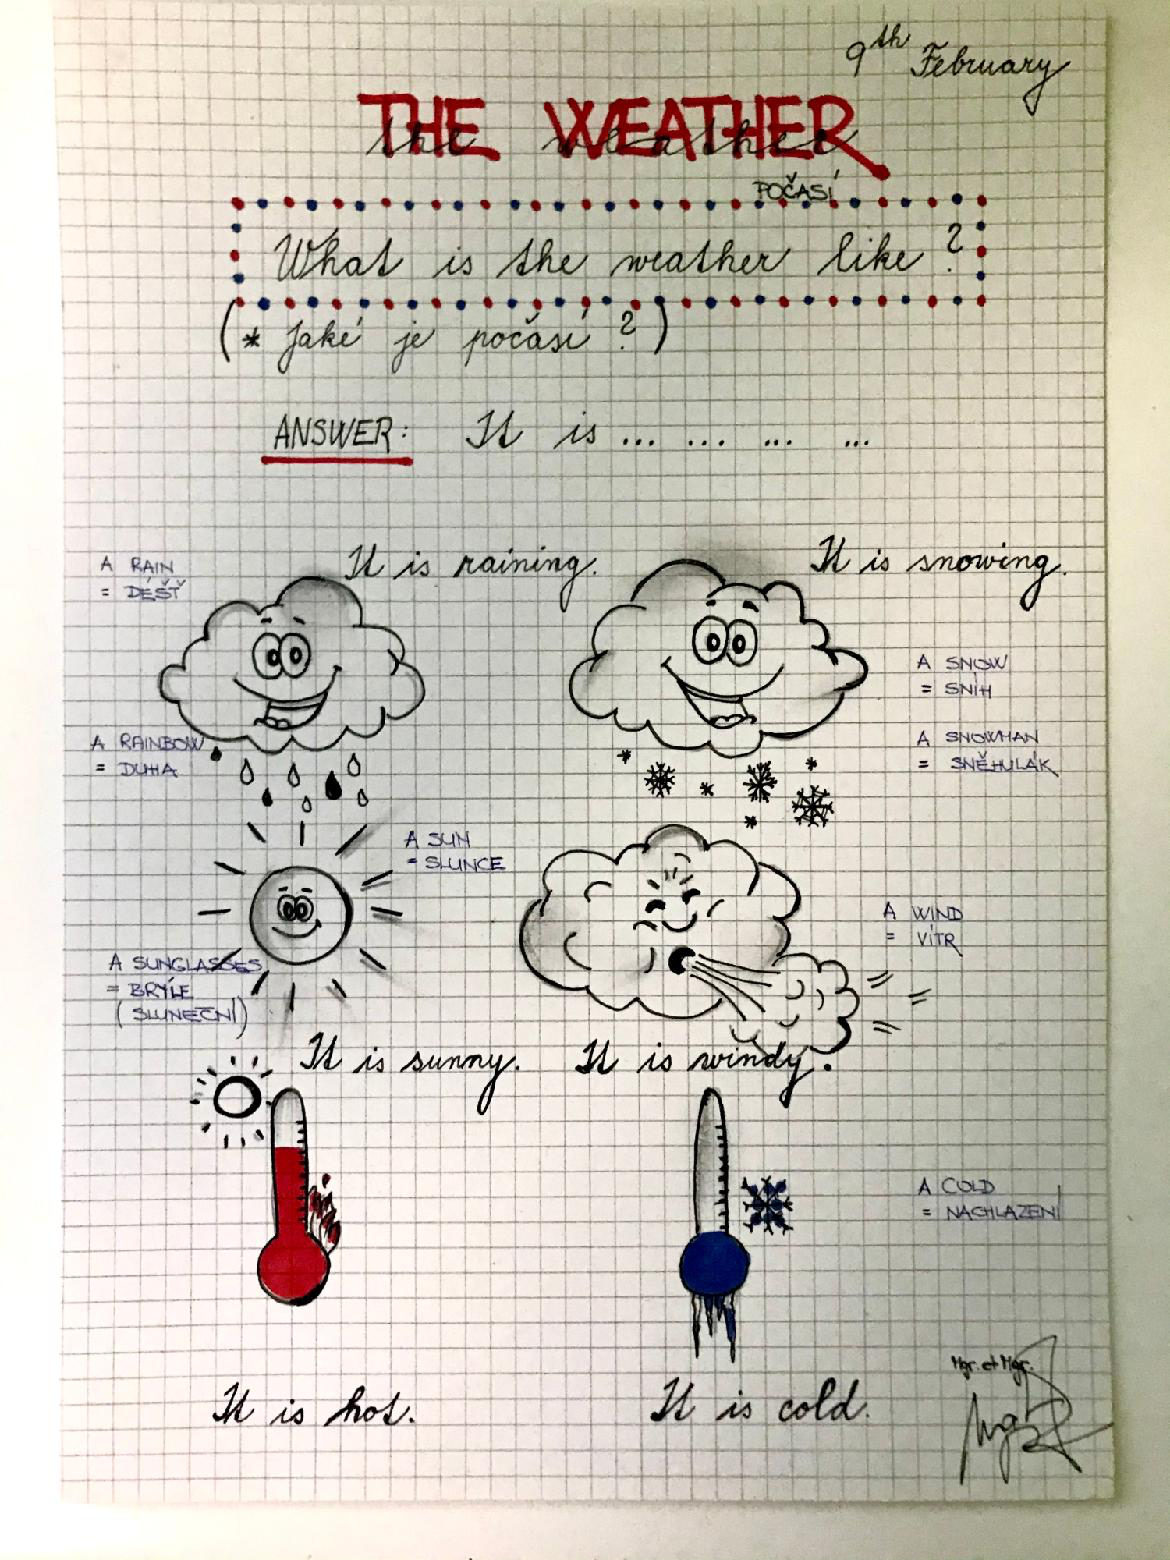 9th February
THE WEATHER
the weather
POČASÍ
What is the weather like?
(* Jaké je počasí?)
ANSWER: It is ... ... ... ...
A RAIN
= DÉŠŤ
It is raining.
It is snowing.
A SNOW
= SNÍH
A RAINBOW
= DUHA
A SNOWMAN
= SNĚHULÁK
A SUN
= SLUNCE
A WIND
= VÍTR
A SUNGLASSES
= BRÝLE
(SLUNEČNÍ)
It is sunny.
It is windy.
A COLD
= NACHLAZENÍ
Mgr. et Mgr.
It is hot.
It is cold.